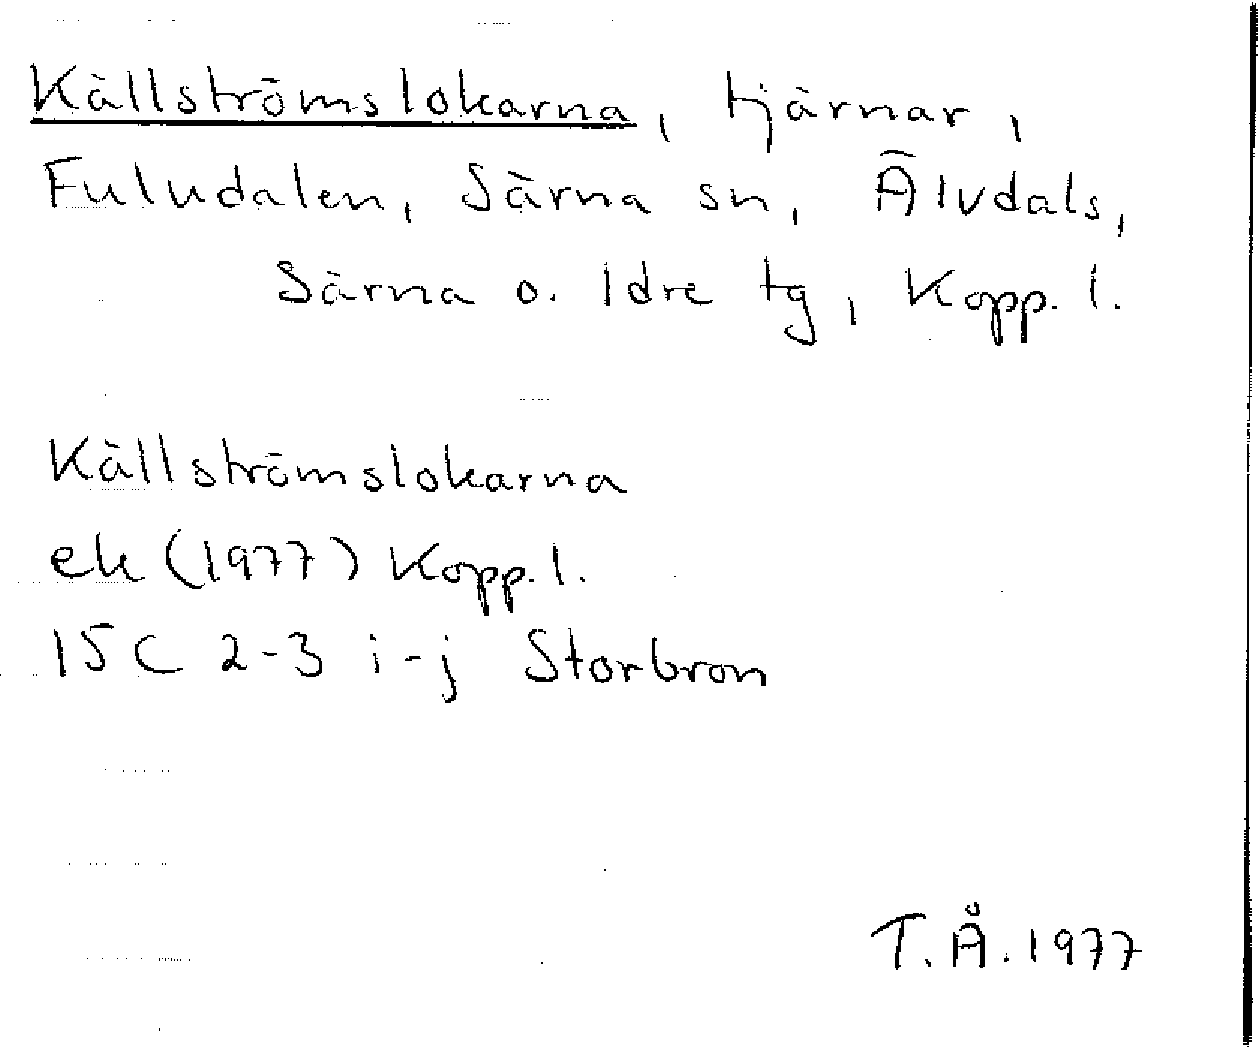 Källströmslokarna, tjärnar,
Fuludalen, Särna sn, Älvdals,
Särna o. Idre tg, Kopp. l.
Källströmslokarna
ek (1977) Kopp. l.
15C 2-3 i-j Storbron
T.Å. 1977